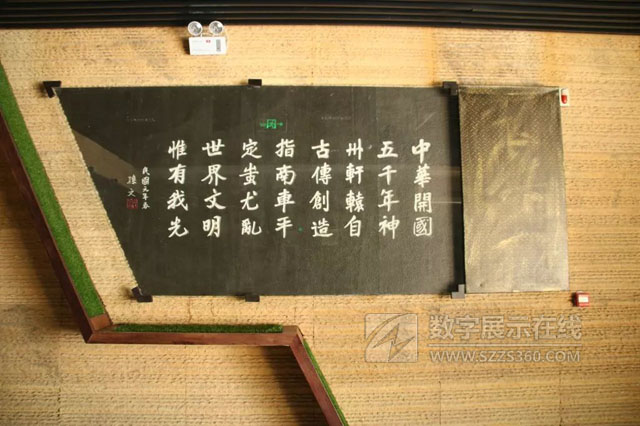 中華開國
五千年神
州軒轅自
古傳創造
指南車平
定蚩尤亂
世界文明
惟有我光
民國元年春
孫文
数字展示在线
WWW.SZZS360.COM